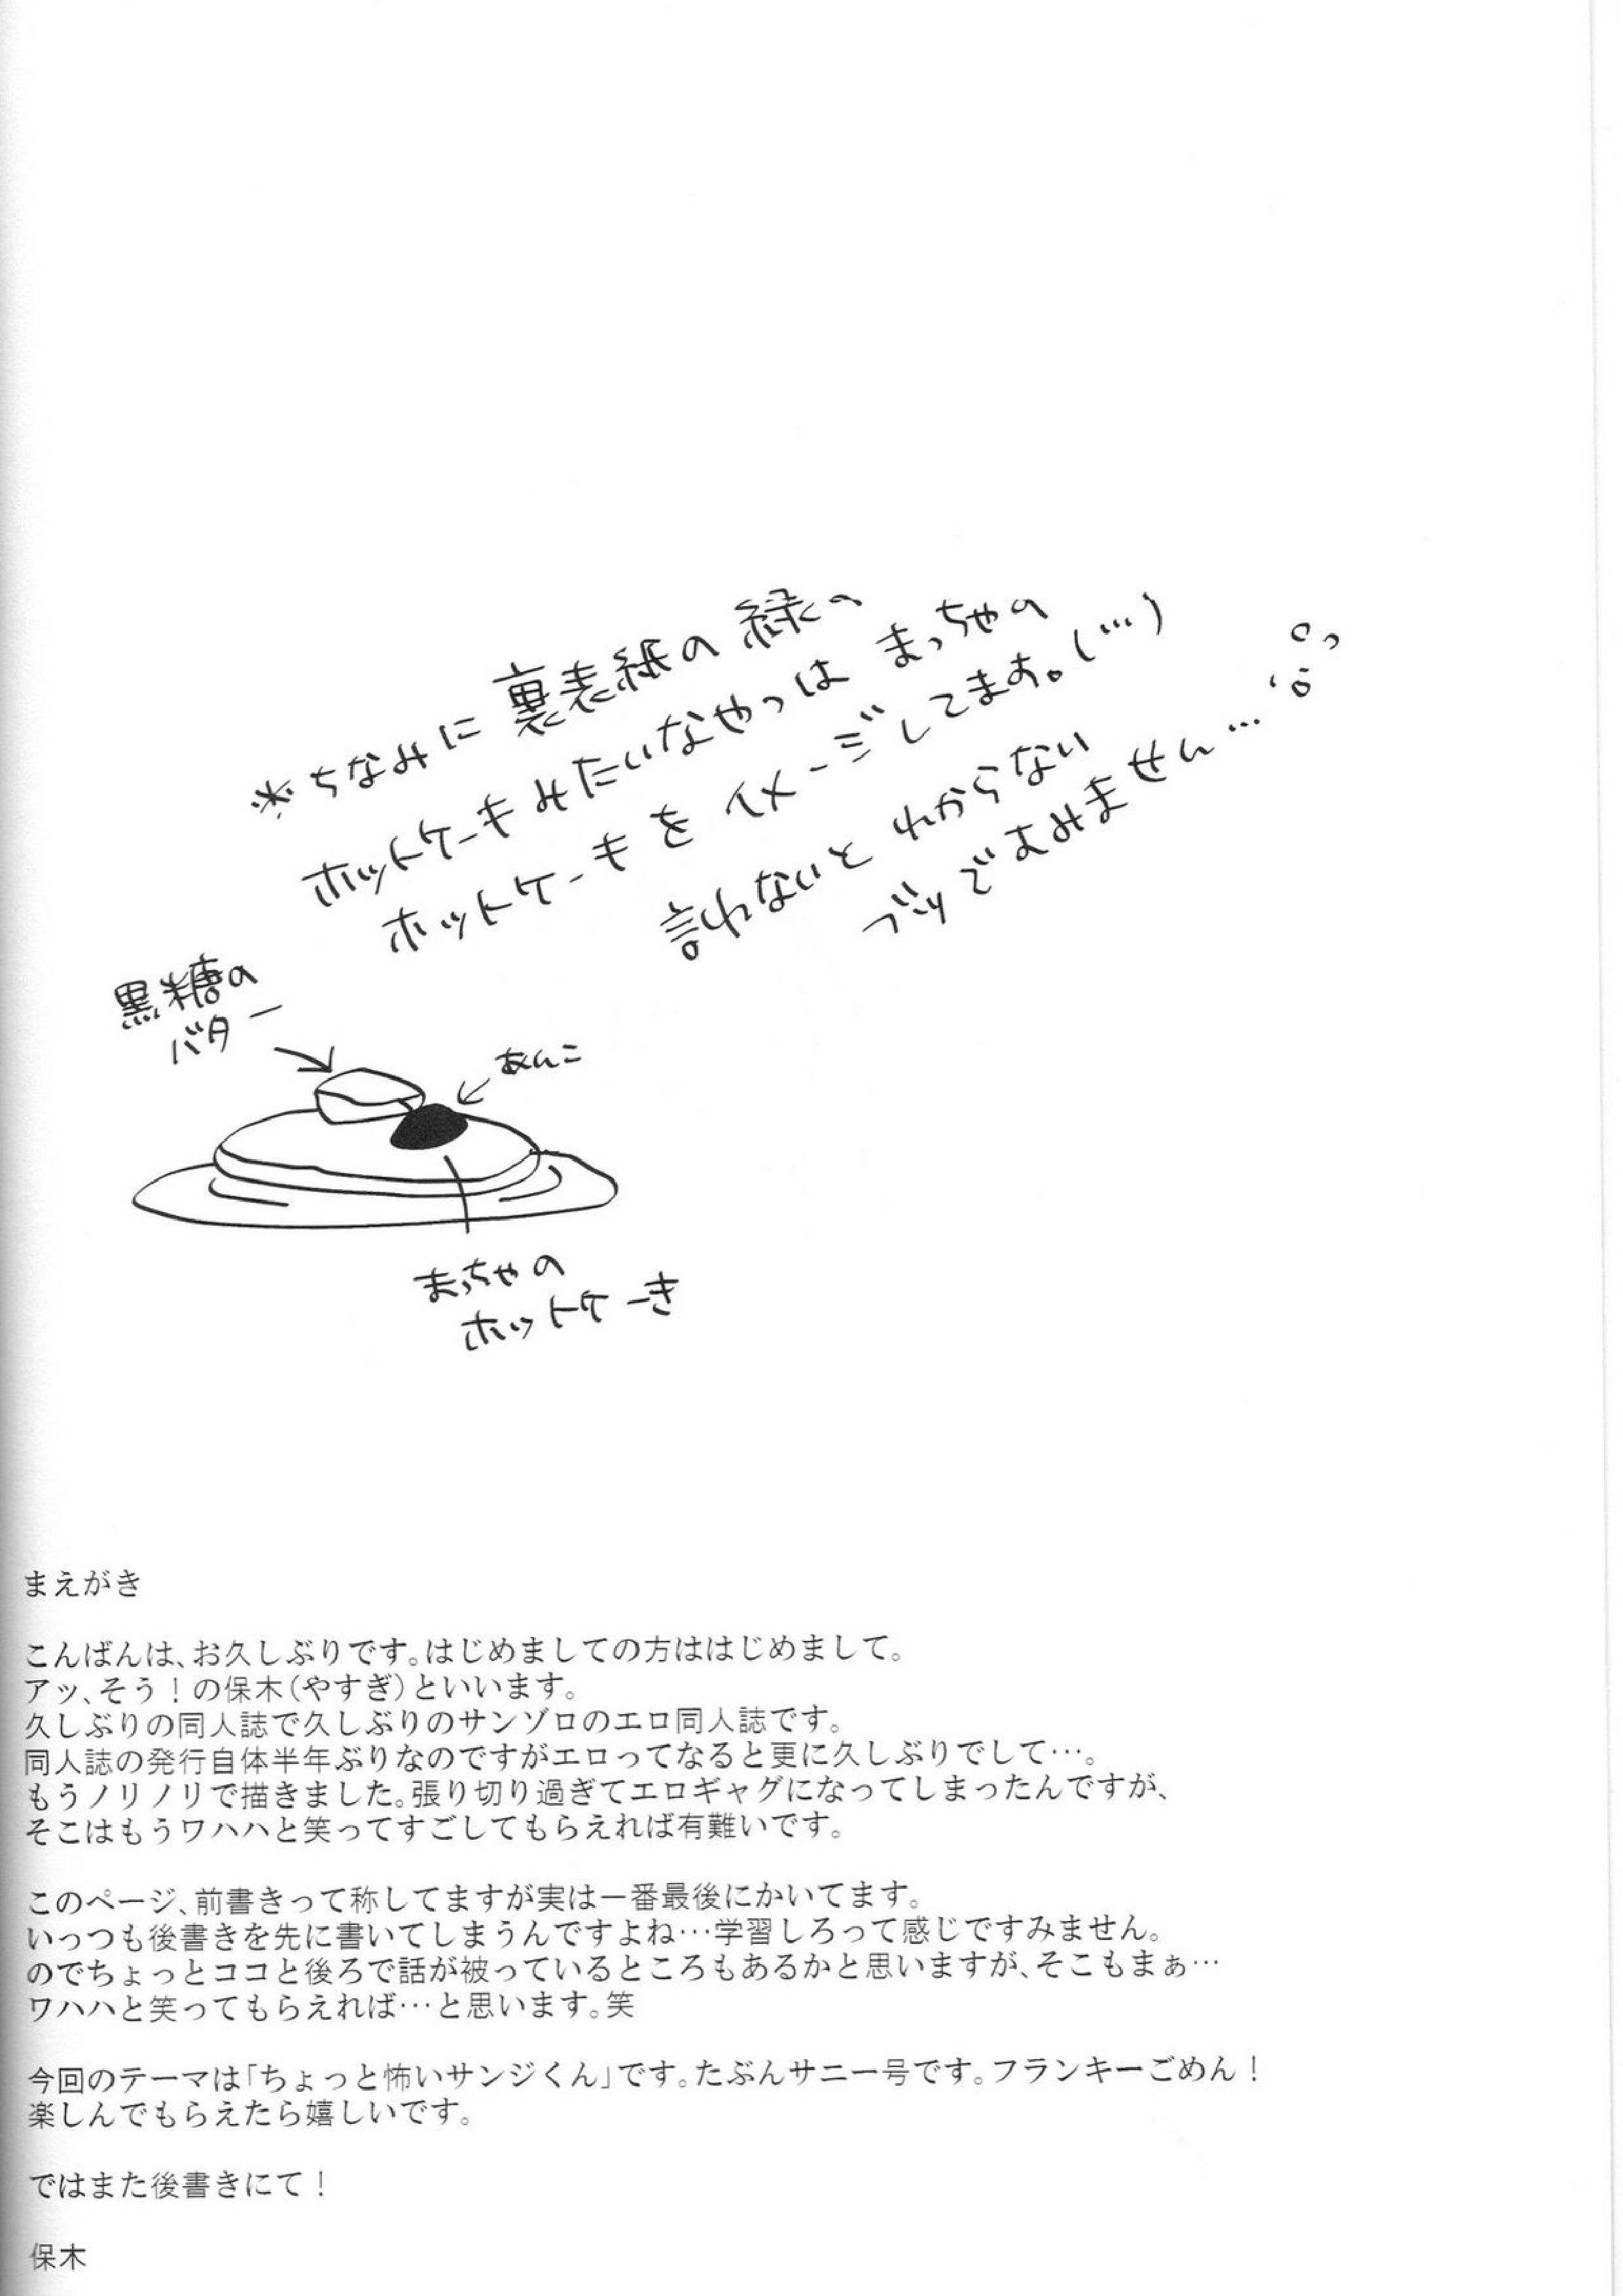 ※ちなみに裏表紙の緑の
ホットケーキみたいなやつはまっちゃの
ホットケーキをイメージしてます。(…)
言われないとわからない
ブツですみません…
黒糖の
バター
あんこ
まっちゃの
ホットケーき
まえがき
こんばんは、お久しぶりです。はじめましての方ははじめまして。
アッ、そう！の保木（やすぎ）といいます。
久しぶりの同人誌で久しぶりのサンゾロのエロ同人誌です。
同人誌の発行自体半年ぶりなのですがエロってなると更に久しぶりでして…。
もうノリノリで描きました。張り切り過ぎてエロギャグになってしまったんですが、
そこはもうワハハと笑ってすごしてもらえれば有難いです。
このページ、前書きって称してますが実は一番最後にかいてます。
いっつも後書きを先に書いてしまうんですよね…学習しろって感じですみません。
のでちょっとココと後ろで話が被っているところもあるかと思いますが、そこもまぁ…
ワハハと笑ってもらえれば…と思います。笑
今回のテーマは「ちょっと怖いサンジくん」です。たぶんサニー号です。フランキーごめん！
楽しんでもらえたら嬉しいです。
ではまた後書きにて！
保木